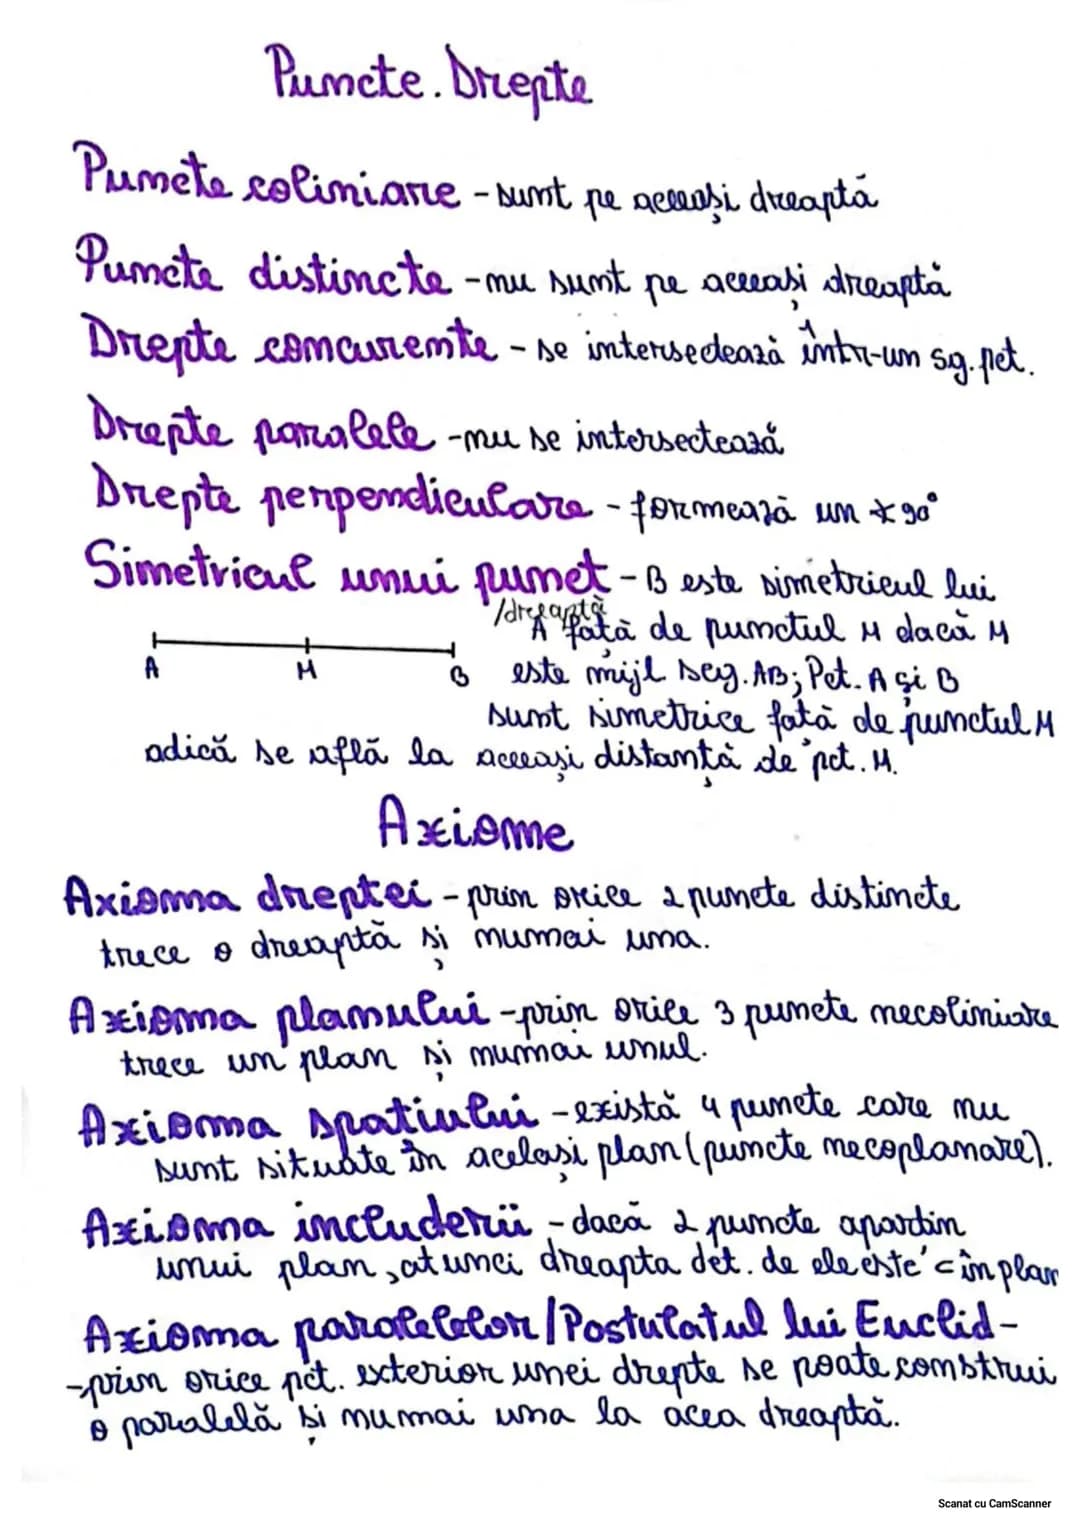 Puncte. Drepte
Puncte coliniare - sunt pe aceeași dreaptă
Puncte distincte - nu sunt pe aceeași dreaptă
Drepte concurente - se intersedează într-un sg. pct.
Drepte paralele - nu se intersectează
Drepte perpendiculare - formează un ∢ 90°
Simetricul unui punct - B este simetricul lui
/dreaptă
A față de punctul M dacă M
A M B
este mijl seg. AB; Pct. A și B
sunt simetrice față de punctul M
adică se află la aceeași distanță de pct. M.
Axiome
Axioma dreptei - prin orice 2 puncte distincte
trece o dreaptă și numai una.
Axioma planului - prin orice 3 puncte necoliniare
trece un plan și numai unul.
Axioma spatiului - există 4 puncte care nu
sunt situate în același plan (puncte necoplanare).
Axioma includerii - dacă 2 puncte apartin
unui plan, atunci dreapta det. de ele este ⊂ în plan
Axioma paralelelor/Postulatul lui Euclid -
- prin orice pct. exterior unei drepte se poate construi
o paralelă și numai una la acea dreaptă.
Scanat cu CamScanner